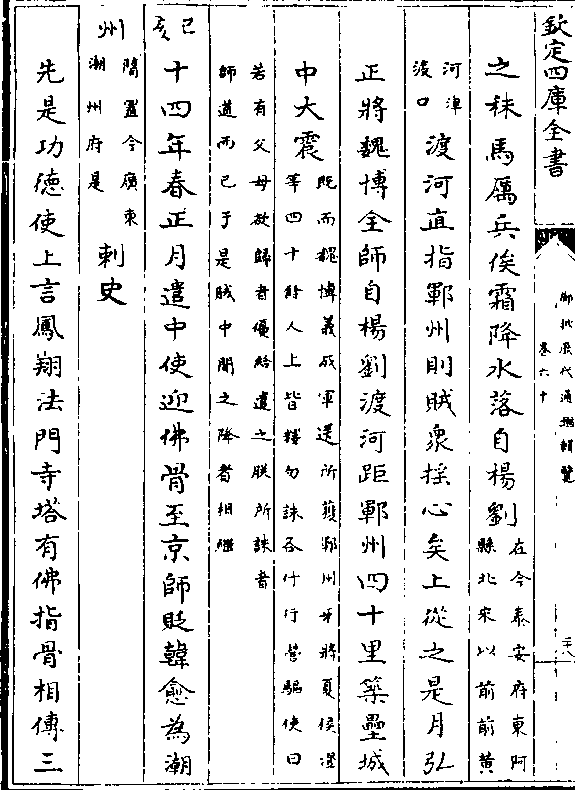 欽定四庫全書
御批歷代通鑑輯覽
卷六十
之秣馬厲兵俟霜降水落自楊劉在今泰安府東阿縣北宋以前前黃
河津渡口渡河直指鄆州則賊衆揺心矣上從之是月弘
正將魏博全師自楊劉渡河距鄆州四十里築壘城
中大震既而魏博義成軍送所獲鄆州牙將夏侯澄等四十餘人上皆釋勿誅各付行營驅使曰
若有父母欲歸者優給遣之朕所誅者師道而已于是賊中聞之降者相繼
己亥十四年春正月遣中使迎佛骨至京師貶韓愈為潮
州隋置今廣東潮州府是刺史
先是功德使上言鳳翔法門寺塔有佛指骨相傳三